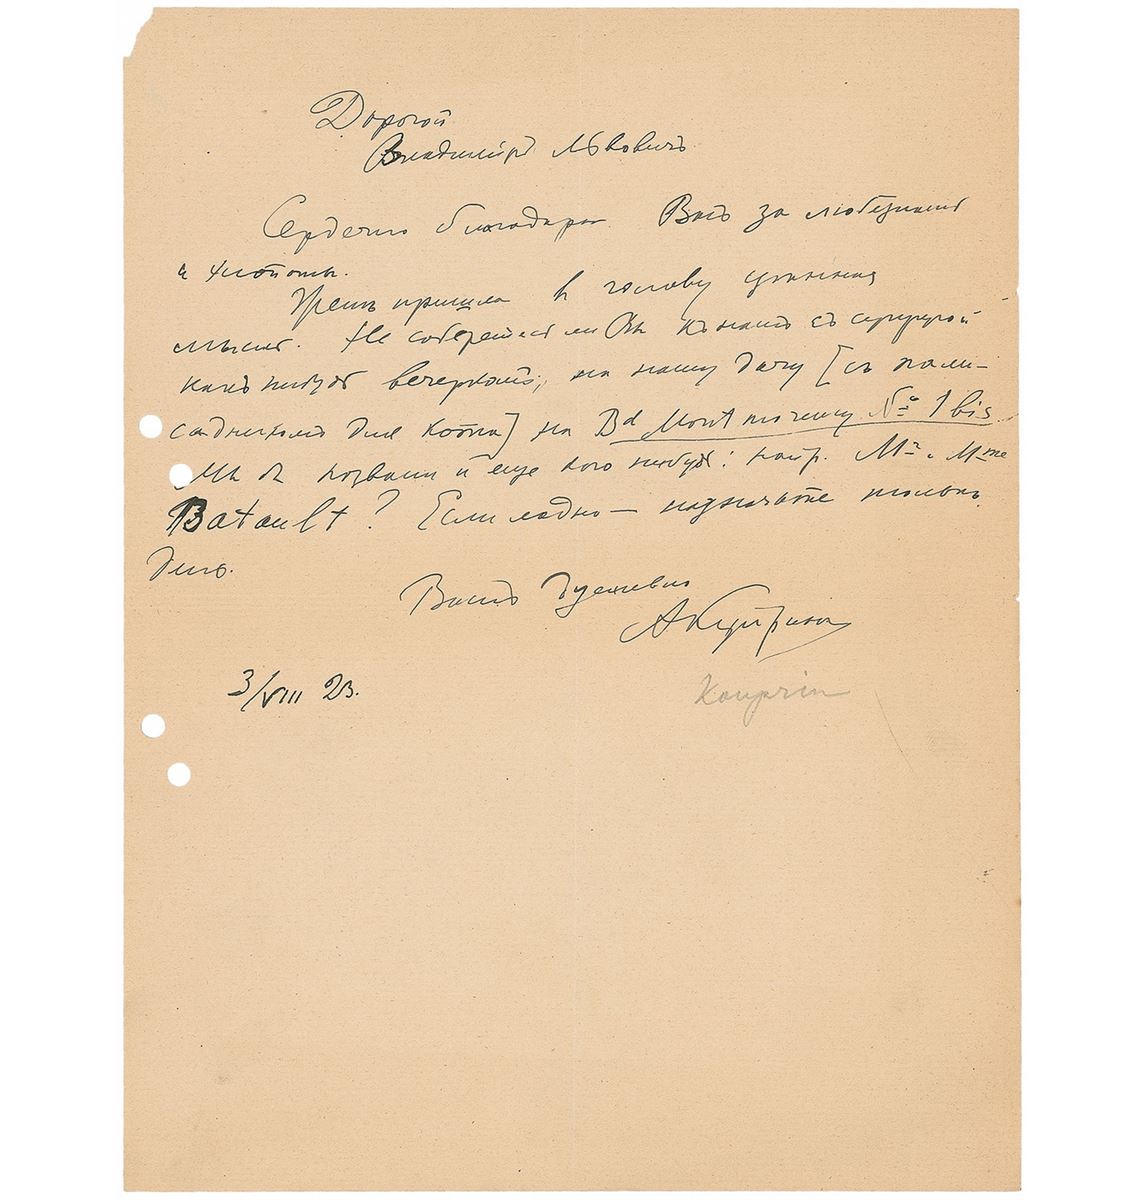 Дорогой
Владимiръ Львовичъ.
Сердечно благодарю Васъ за любезность
и хлопоты.
пришла в голову
мысль. Не соберетесь ли Вы къ намъ съ супругой
какъ нибудь вечеркомъ, на нашу дачу [съ пали-
садничкомъ для кота] на Bd Montmorency № 1 bis
Мы бъ позвали и еще кого нибудь: напр. Mr и Mme
Batault? Если ладно — назначьте только
день.
Вашъ душевно
АКупринъ
3/VIII 23.
Kouprin